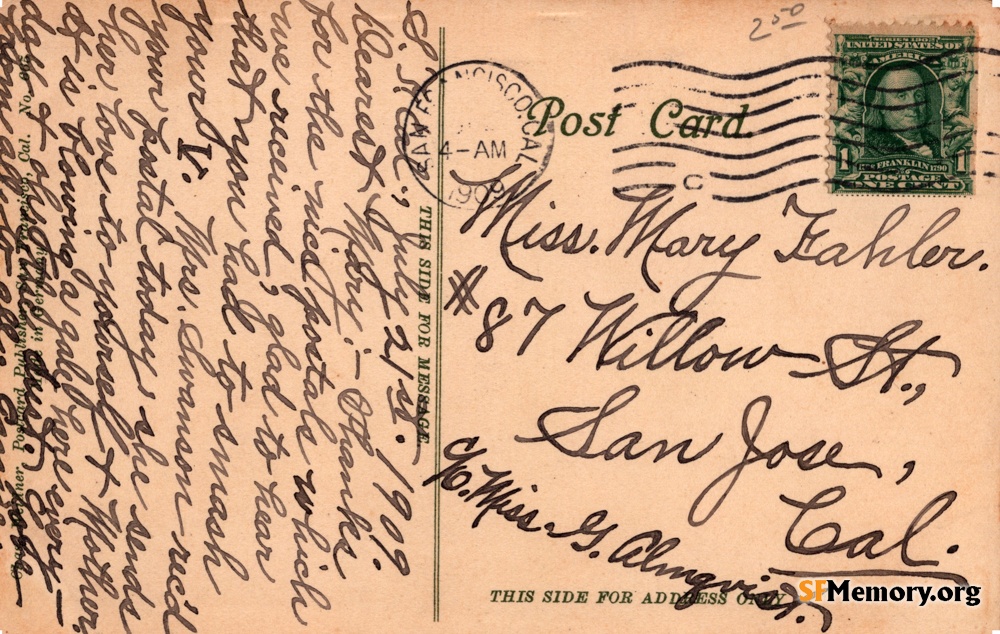 S.F. Cal., July 21st. 1909.
Dearest Mary:- Thanks
for the nice postals which
we received, glad to hear
that you had to smash
yours
V. Mrs. Swanson rec'd
your postal today & she sends
her love to yourself & Mother.
It is blowing a gale here every
day &
THIS SIDE FOR MESSAGE
Postcard Publisher, San Francisco, Cal. No.
in Germany
250
SAN FRANCISCO, CAL.
4-AM
1909
C
Post Card
SERIES 1902
UNITED STATES OF
AMERICA
1 FRANKLIN 1
POSTAGE
ONE CENT
Miss. Mary Fahler.
#87 Willow St.,
San Jose,
Cal.
c/o. Miss. G. Almqvist.
THIS SIDE FOR ADDRESS ONLY
SFMemory.org